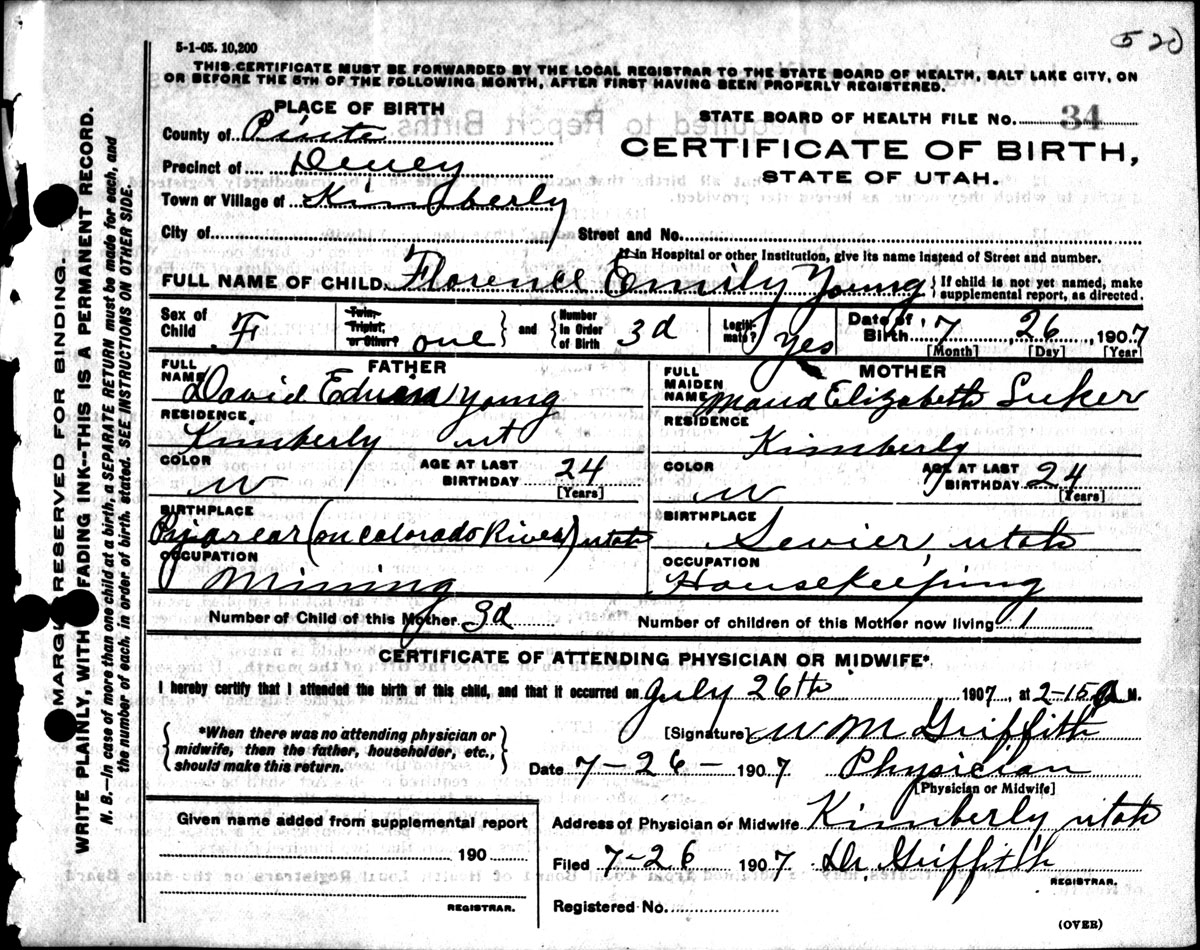 520
5-1-05. 10,200
THIS CERTIFICATE MUST BE FORWARDED BY THE LOCAL REGISTRAR TO THE STATE BOARD OF HEALTH, SALT LAKE CITY, ON
OR BEFORE THE 5TH OF THE FOLLOWING MONTH, AFTER FIRST HAVING BEEN PROPERLY REGISTERED.
PLACE OF BIRTH
County of Piute
Precinct of Dewey
Town or Village of Kimberly
City of
STATE BOARD OF HEALTH FILE NO. 34
CERTIFICATE OF BIRTH,
STATE OF UTAH.
Street and No.
If in Hospital or other Institution, give its name instead of Street and number.
FULL NAME OF CHILD. Florence Emily Young { If child is not yet named, make
supplemental report, as directed.
Sex of Child F
Twin, Triplet, or Other? one } and { Number in Order of Birth 3d
Legitimate? Yes
Date of Birth 7, 26, 1907
[Month] [Day] [Year]
FATHER
FULL NAME David Edwin Young
RESIDENCE
Kimberly ut
COLOR W
AGE AT LAST BIRTHDAY 24
[Years]
BIRTHPLACE
(on Colorado River) utah
OCCUPATION
Mining
MOTHER
FULL MAIDEN NAME Maud Elizabeth Suker
RESIDENCE
Kimberly
COLOR W
AGE AT LAST BIRTHDAY 24
[Years]
BIRTHPLACE
Sevier, utah
OCCUPATION
Housekeeping
Number of Child of this Mother 3d Number of children of this Mother now living 1
CERTIFICATE OF ATTENDING PHYSICIAN OR MIDWIFE*
I hereby certify that I attended the birth of this child, and that it occurred on July 26th 1907, at 2-15 a M.
{ *When there was no attending physician or
midwife, then the father, householder, etc.,
should make this return. }
[Signature] W M Griffith
Date 7-26- 1907 Physician
[Physician or Midwife]
Given name added from supplemental report
190
REGISTRAR.
Address of Physician or Midwife Kimberly utah
Filed 7-26 1907 Dr. Griffith
REGISTRAR.
Registered No.
(OVER)
MARGIN RESERVED FOR BINDING.
WRITE PLAINLY, WITH FADING INK--THIS IS A PERMANENT RECORD.
N. B.—In case of more than one child at a birth, a SEPARATE RETURN must be made for each, and
the number of each, in order of birth, stated. SEE INSTRUCTIONS ON OTHER SIDE.